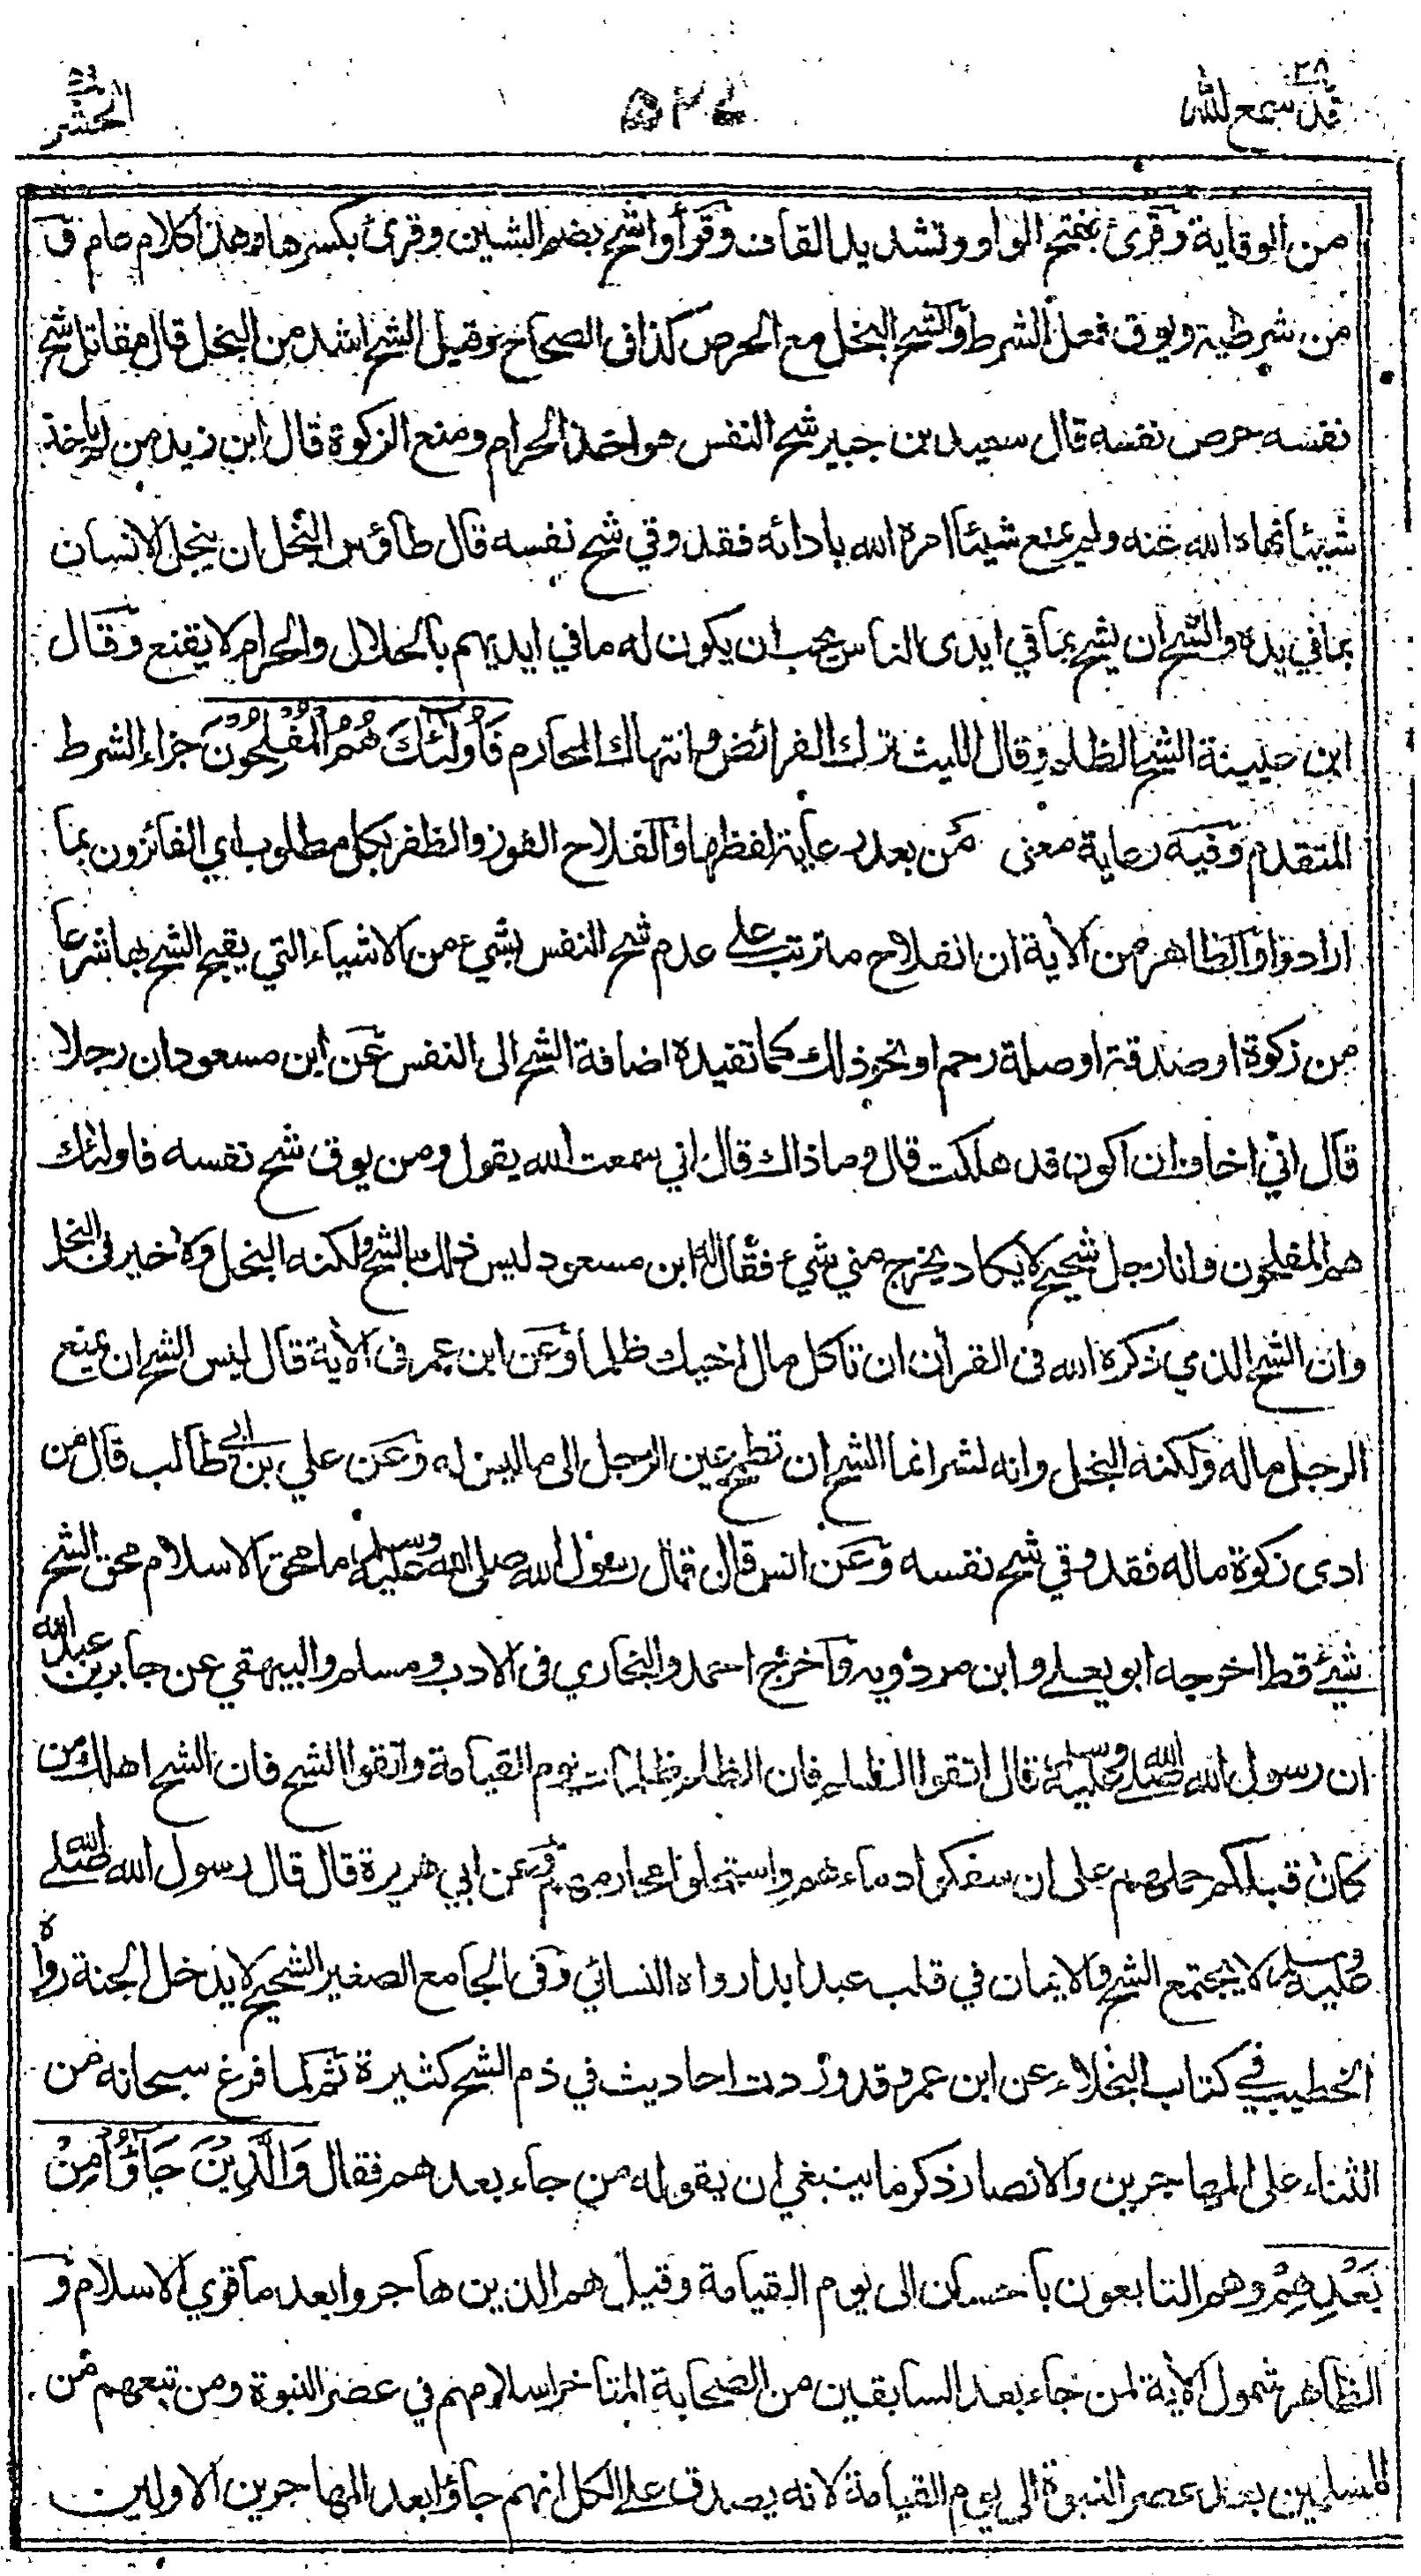 قد سمع الله ٢٨
٥٢٧
الحشر ٥٩
من الوقاية وقرئ بفتح الواو وتشديد القاف وقرأوا شح بضم الشين وقرئ بكسرها وهذا كلام عام ف
من شرطية ويوق فعل الشرط والشح البخل مع الحرص كذا في الصحاح وقيل الشح اشد من البخل قال مقاتل شح
نفسه حرص نفسه قال سعيد بن جبير شح النفس هو اخذ الحرام ومنع الزكوة قال ابن زيد من لم ياخذ
شيئا نهاه الله عنه ولم يمنع شيئا امره الله بادائه فقد وقي شح نفسه قال طاؤس البخل ان يبخل الانسان
بما في يده والشح ان يشح بما في ايدى الناس يحب ان يكون له ما في ايديهم بالحلال والحرام لا يقنع وقال
ابن عيينة الشح الظلم وقال الليث ترك الفرائض وانتهاك المحارم فَأُولٰئِكَ هُمُ الْمُفْلِحُونَ جزاء الشرط
المتقدم وفيه رعاية معنى من بعد رعاية لفظها والفلاح الفوز والظفر بكل مطلوب اي الفائزون بما
ارادوا والظاهر من الأية ان الفلاح مترتب على عدم شح النفس بشيء من الاشياء التي يقبح الشح بها شرعا
من زكوة او صدقة او صلة رحم او نحو ذلك كما تفيده اضافة الشح الى النفس عن ابن مسعود ان رجلا
قال اني اخاف ان اكون قد هلكت قال وما ذاك قال اني سمعت الله يقول ومن يوق شح نفسه فاولئك
هم المفلحون وانا رجل شحيح لا يكاد يخرج مني شيء فقال له ابن مسعود ليس ذلك بالشح ولكنه البخل ولا خير في البخل
وان الشح الذي ذكره الله في القرأن ان تاكل مال اخيك ظلما وعن ابن عمر في الأية قال ليس الشح ان يمنع
الرجل ماله ولكنه البخل وانه لشر انما الشح ان تطمح عين الرجل الى ما ليس له وعن علي بن ابي طالب قال من
ادى زكوة ماله فقد وقي شح نفسه وعن انس قال قال رسول الله صلى الله عليه وسلم ما محق الاسلام محق الشح
شيئ قط اخرجه ابو يعلى وابن مردويه واخرج احمد والبخاري في الادب ومسلم والبيهقي عن جابر بن عبد الله
ان رسول الله صلى الله عليه وسلم قال اتقوا الظلم فان الظلم ظلمات يوم القيامة واتقوا الشح فان الشح اهلك من
كان قبلكم حملهم على ان سفكوا دماءهم واستحلوا محارمهم وعن ابي هريرة قال قال رسول الله صلى الله
عليه وسلم لا يجتمع الشح والايمان في قلب عبد ابدا رواه النسائي وفي الجامع الصغير الشحيح لا يدخل الجنة رواه
الخطيب في كتاب البخلاء عن ابن عمر وقد وردت احاديث في ذم الشح كثيرة ثم لما فرغ سبحانه من
الثناء على المهاجرين والانصار ذكر ما ينبغي ان يقوله من جاء بعدهم فقال وَالَّذِيْنَ جَآؤُا مِنْ
بَعْدِهِمْ وهم التابعون باحسان الى يوم القيامة وقيل هم الذين هاجروا بعد ما قوي الاسلام و
الظاهر شمول الأية لمن جاء بعد السابقين من الصحابة المتاخر اسلامهم في عصر النبوة ومن تبعهم من
المسلمين بعد عصر النبوة الى يوم القيامة لانه يصدق على الكل انهم جاؤا بعد المهاجرين الاولين